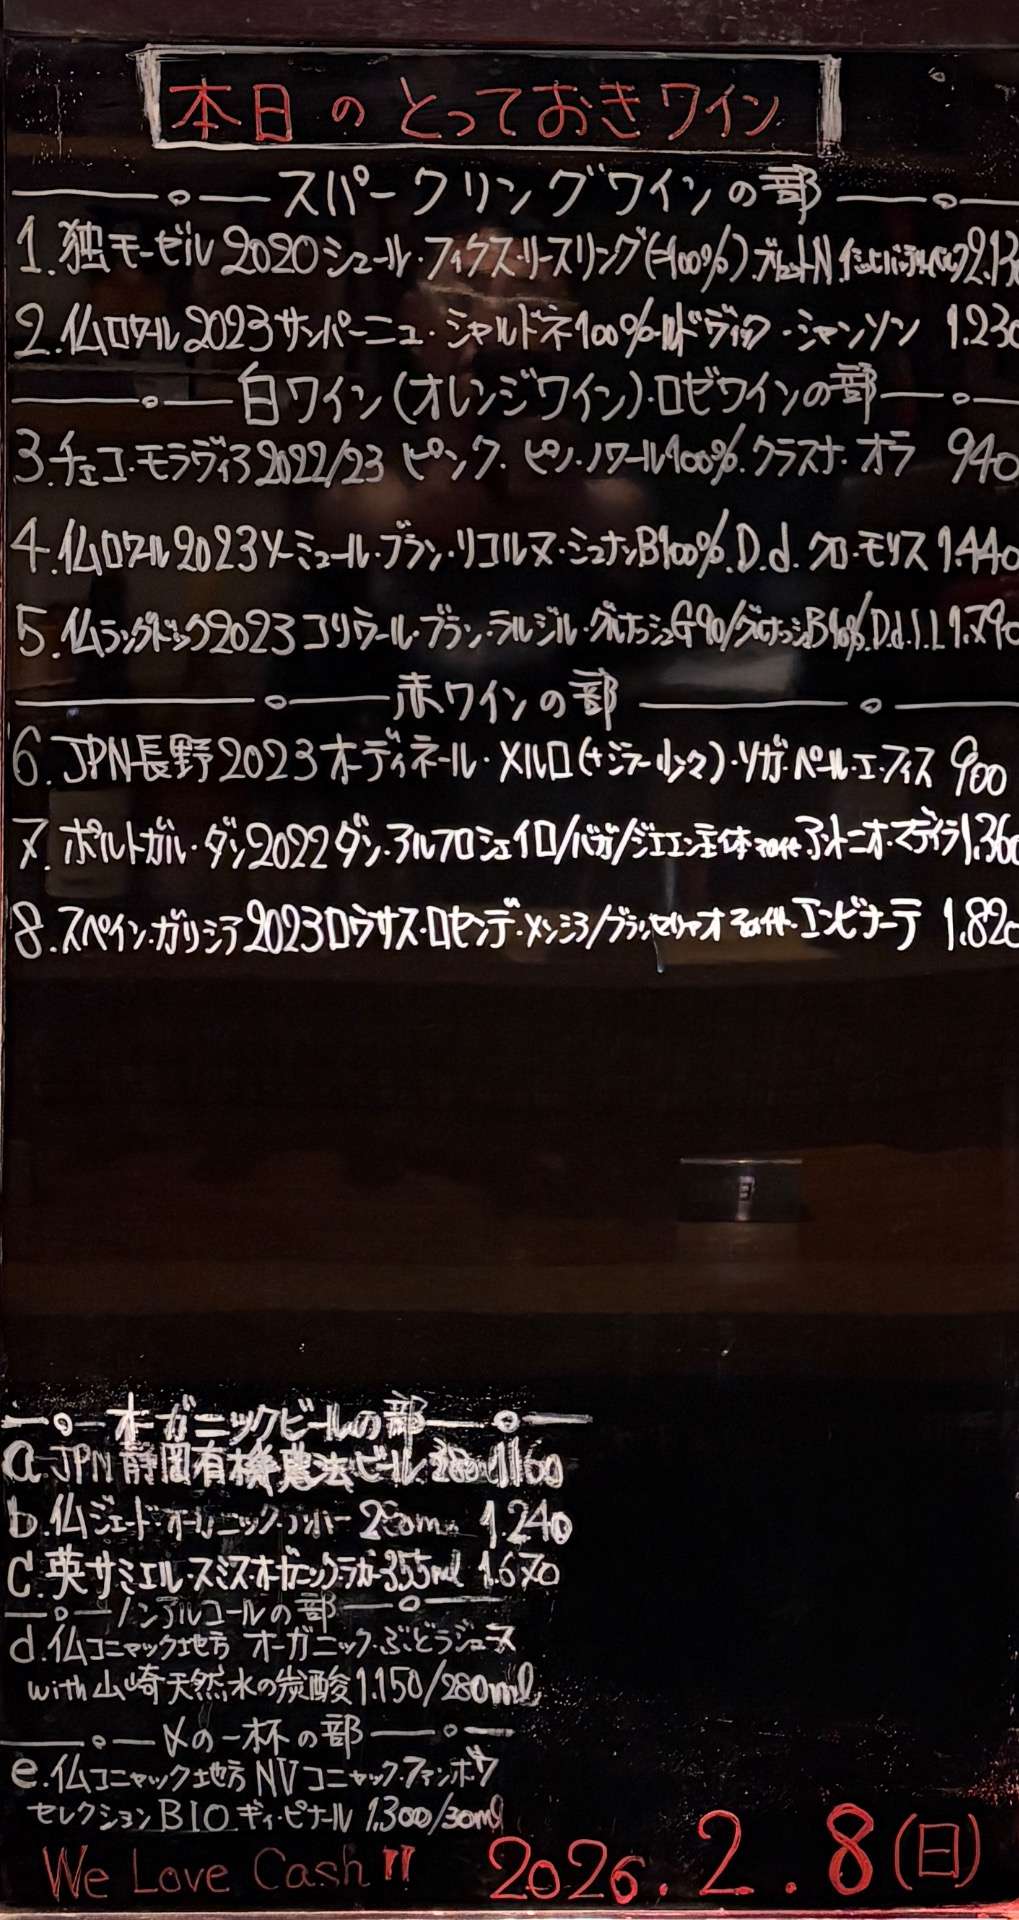 本日のとっておきワイン
スパークリングワインの部
1.独モーゼル2020シュール・フィクス・リースリング(=100%).
2.仏ロワール2023サンパーニュ・シャルドネ100%・ルドヴィック・シャンソン 1.230
白ワイン(オレンジワイン)・ロゼワインの部
3.チェコ・モラヴィア2022/23 ピンク.ピノ・ノワール100%.クラスナ・オラ 940
4.仏ロワール2023ソーミュール・ブラン・リコルヌ・シュナンB100%.D.d.クロ・モリス 1.440
5.仏ラングドック2023コリウール・ブラン・ラルジル・グルナッシュG90/グルナッシュB10%.D.d. 1.790
赤ワインの部
6.JPN長野2023オーディネール・メルロ・ソガ・ペール・エ・フィス 900
7.ポルトガル・ダン2022ダン.アルフロシェイロ/バガ/ジャエン主体 アントニオ・マデイラ 1.360
8.スペイン・ガリシア2023ロウサス・ロセンデ・メンシア/ブランセリャオ その他・エンビナーテ 1.820
オーガニックビールの部
a.JPN静岡有機農法ビール 1160
b.仏ジェード・オーガニック・アンバー 250ml 1.240
c.英サミエル・スミス・オーガニックラガー355ml 1.670
ノンアルコールの部
d.仏コニャック地方 オーガニック・ぶどうジュース
with山崎天然水の炭酸1.150/280ml
〆の一杯の部
e.仏コニャック地方NVコニャック・ファンボワ
セレクションBIO.ギィ・ピナール 1.300/30ml
We Love Cash!! 2026.2.8(日)